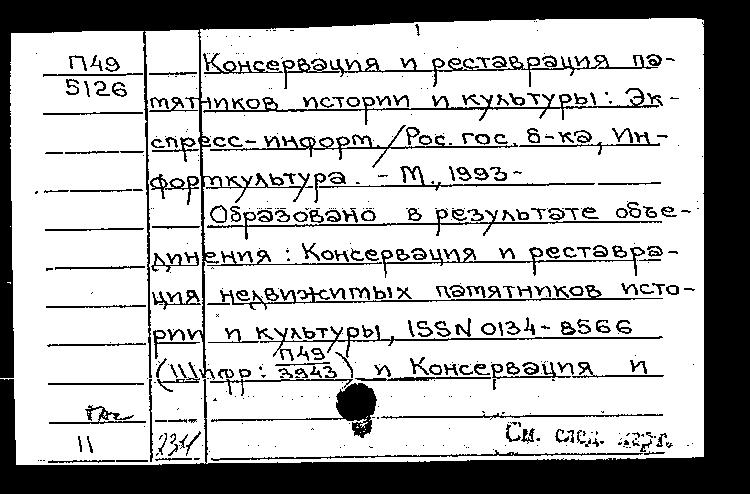 П49
5126
Консервация и реставрация па-
мятников истории и культуры: Эк-
спресс-информ. / Рос. гос. б-ка, Ин-
формкультура. - М., 1993-
Образовано в результате объе-
динения: Консервация и реставра-
ция недвижимых памятников исто-
рии и культуры, ISSN 0134-8566
(Шифр: П49/3943) и Консервация и
11
234
См. след. карт.